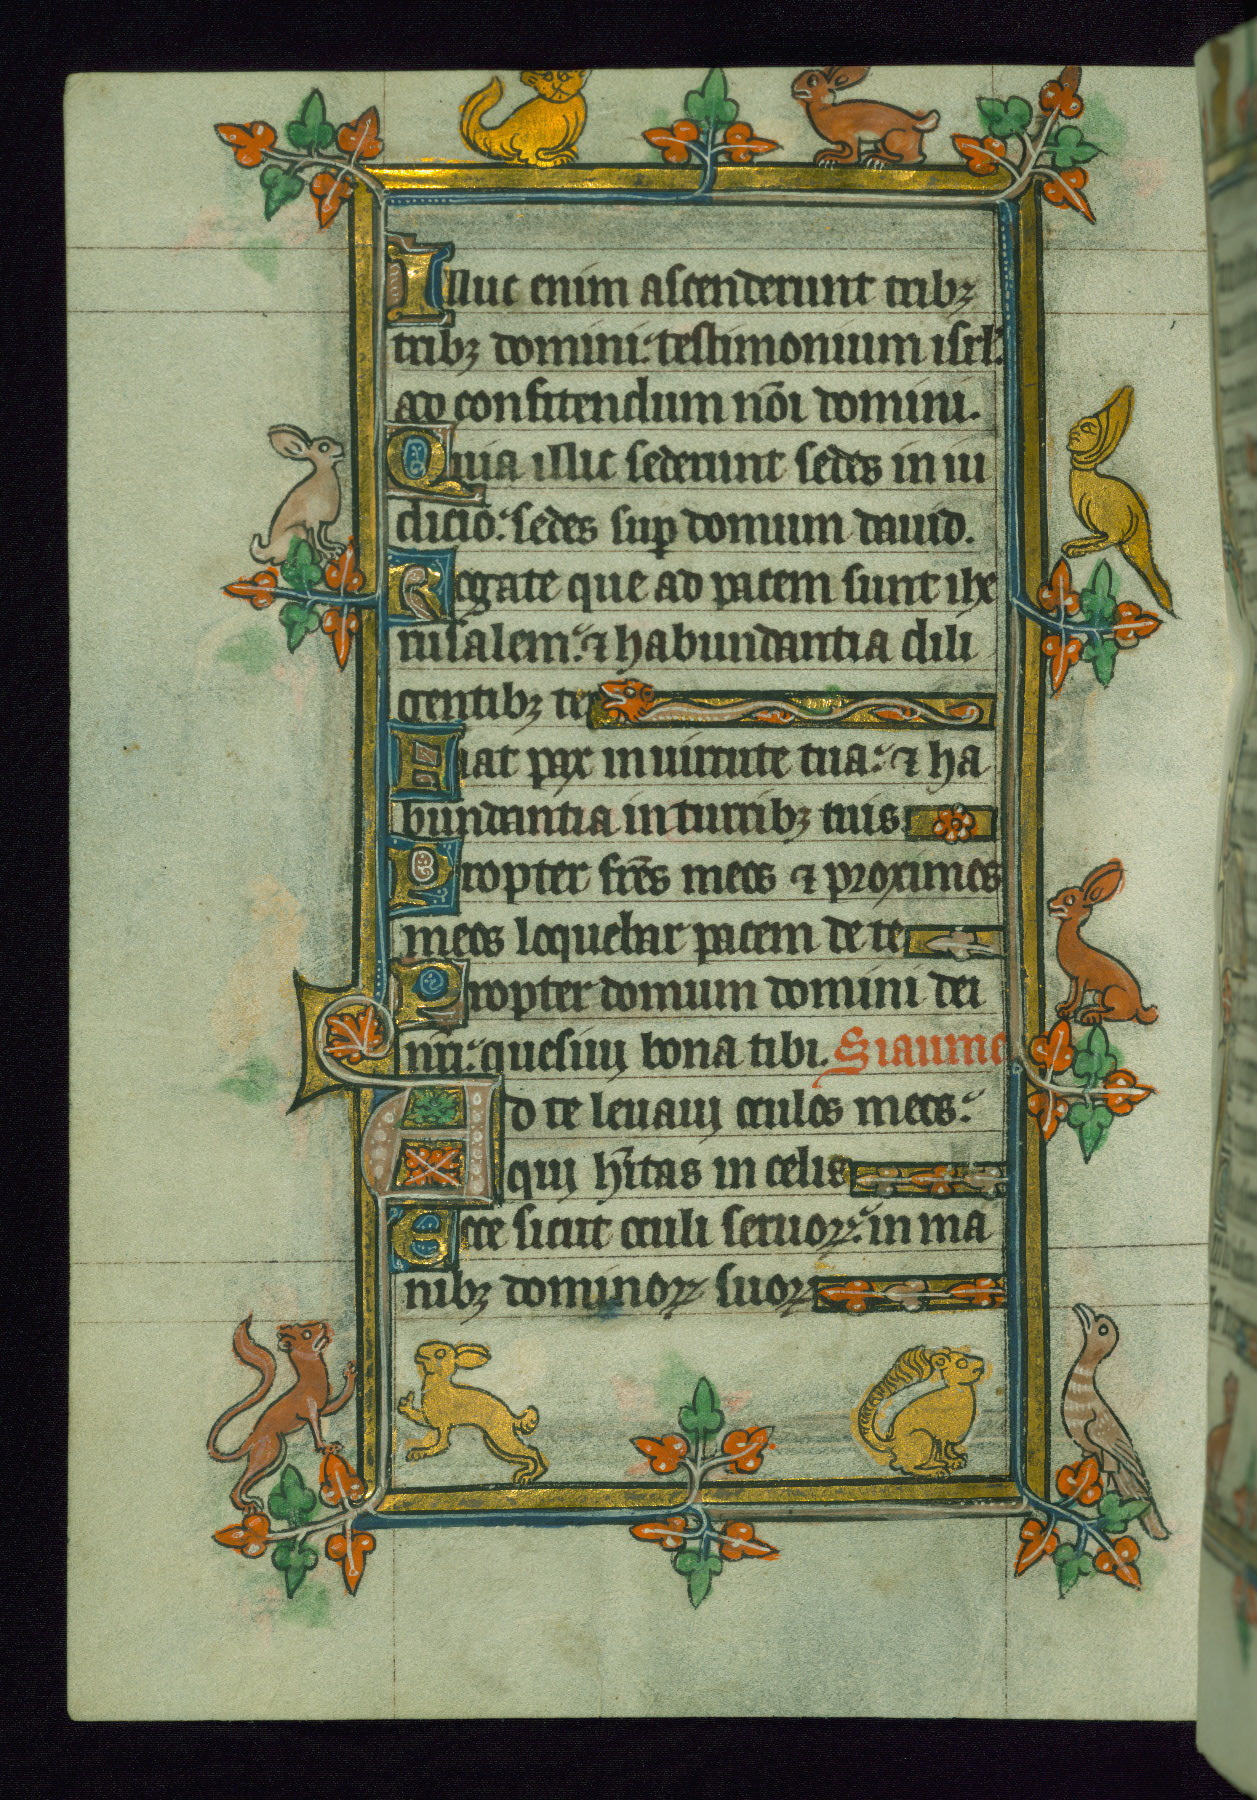 Illuc enim ascenderunt tribꝫ
tribꝫ domini: testimonium isrl'.
ad confitendum nōi domini.
Quia illic sederunt sedes in iu
dicio: sedes suꝑ domum dauid.
Rogate que ad pacem sunt ihe
rusalem: ⁊ habundantia dili
gentibꝫ te
Fiat pax in uirtute tua: ⁊ ha
bundantia in turribꝫ tuis
Propter fr̄es meos ⁊ proximos
meos loquebar pacem de te
Propter domum domini dei
nr̄i: quesiui bona tibi. Siaume
Ad te leuaui oculos meos:
qui h̄itas in celis
Ecce sicut oculi seruoꝝ: in ma
nibꝫ dominoꝝ suoꝝ